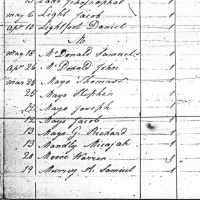 13 Ladd Jehoshaphat
may 6 Light Jacob 1
apr 10 Lightfoot Daniel 1
M
may 18 McDonald Samuel 1
apr 26 McDonald John 1
mar 28 Mayo Thomas 1
25 Mayo Stephen 1
12 Mayo Joseph 1
12 Mayo Jacob 1
13 Mayo G. Richard 1
13 Mandly Micajah 1
20 Moore Warren 1
19 Murrey A. Samuel 1